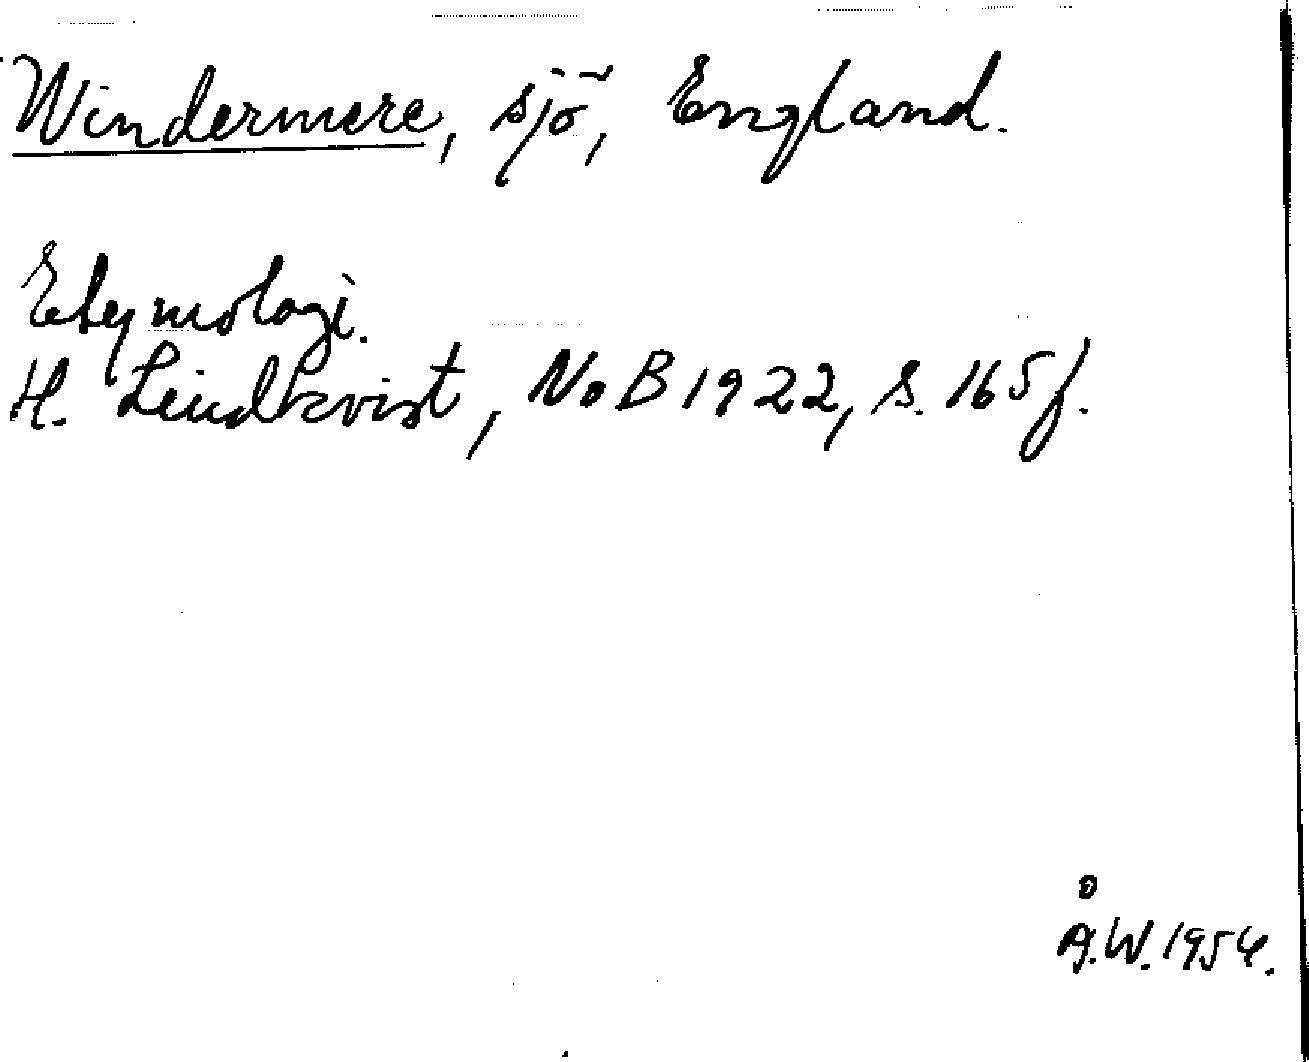 Windermere, sjö, England.
Etymologi.
H. Lindkvist, NoB 1922, s. 165 f.
Å.W. 1954.